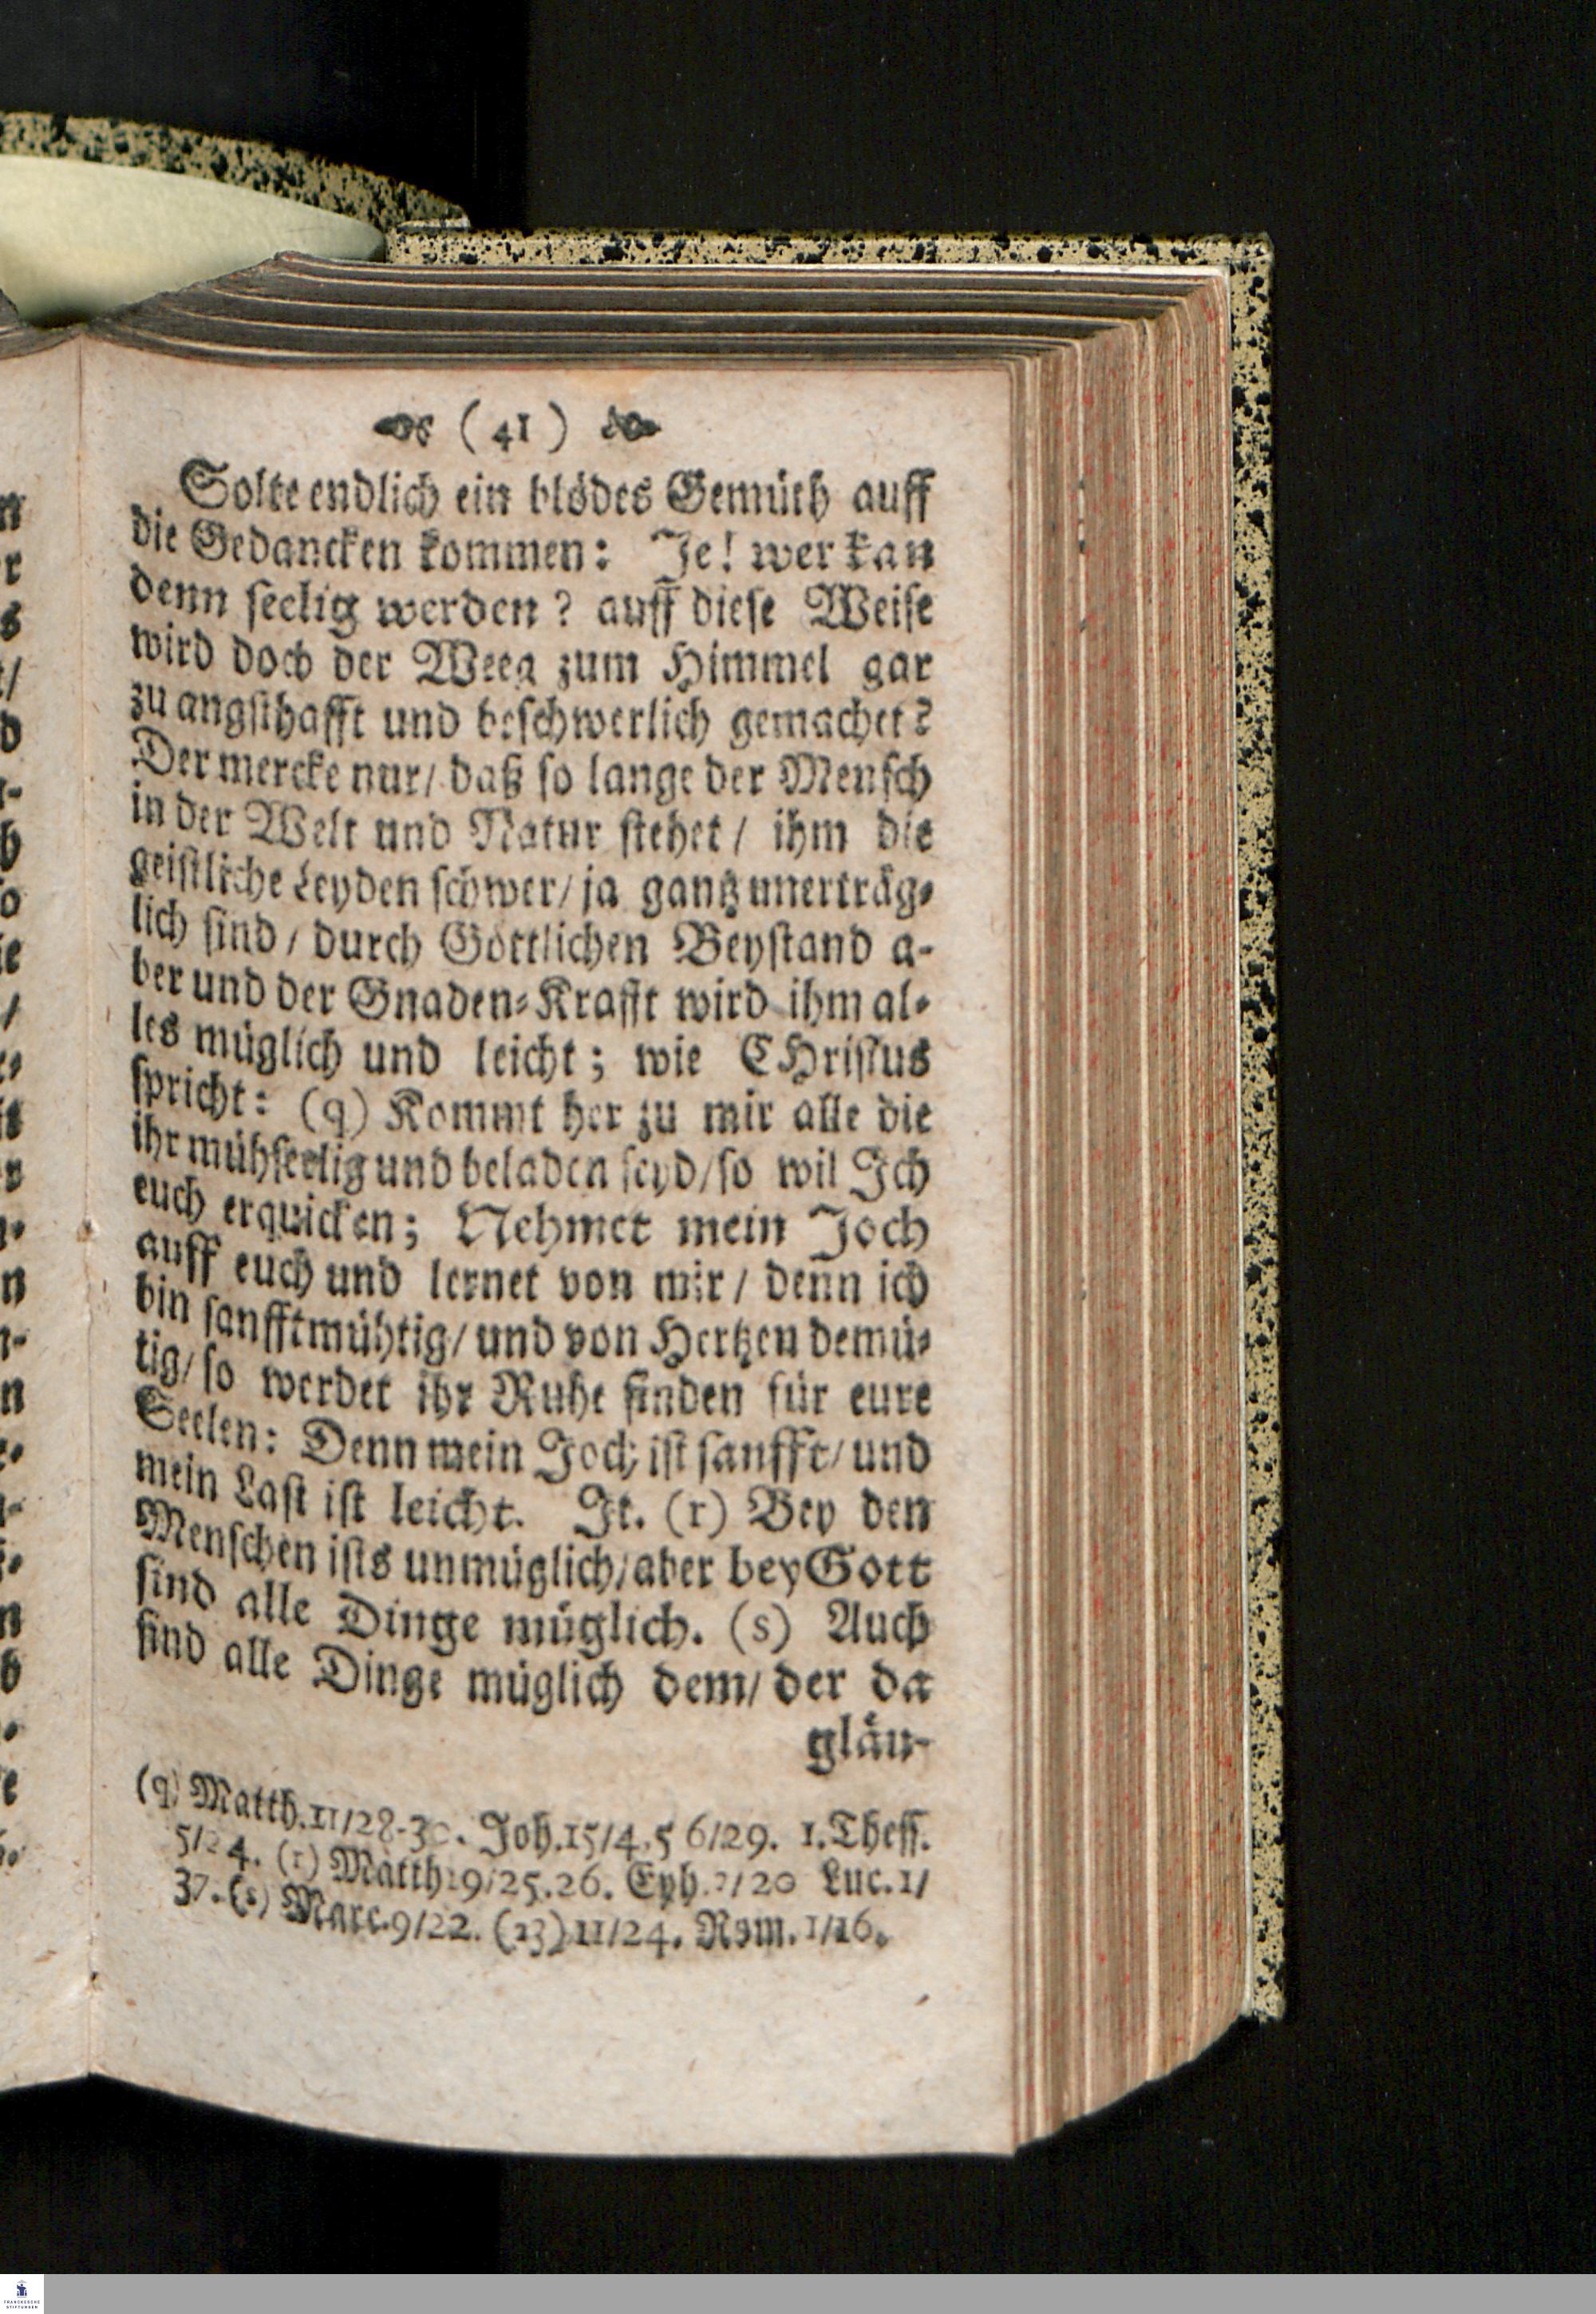 (41)
Solte endlich ein blödes Gemüth auff
die Gedancken kommen: Je! wer kan
denn seelig werden? auff diese Weise
wird doch der Weeg zum Himmel gar
zu angsthafft und beschwerlich gemachet?
Der mercke nur/ daß so lange der Mensch
in der Welt und Natur stehet/ ihm die
geistliche Leyden schwer/ ja gantz unerträg-
lich sind/ durch Göttlichen Beystand a-
ber und der Gnaden-Krafft wird ihm al-
les müglich und leicht; wie CHristus
spricht: (q) Kommt her zu mir alle die
ihr mühseelig und beladen seyd/ so wil Jch
euch erquicken; Nehmet mein Joch
auff euch und lernet von mir/ denn ich
bin sanfftmühtig/ und von Hertzen demü-
tig/ so werdet ihr Ruhe finden für eure
Seelen: Denn mein Joch ist sanfft/ und
mein Last ist leicht. Jt. (r) Bey den
Menschen ists unmüglich/ aber bey Gott
sind alle Dinge müglich. (s) Auch
sind alle Dinge müglich dem/ der da
gläu-
(q) Matth. 11/28-30. Joh. 15/4.5 6/29. 1. Thess.
5/24. (r) Matth 19/25.26. Eph. 3/20 Luc. 1/
37. (s) Marc. 9/22. (23) 11/24. Rom. 1/16.
FRANCKESCHE
STIFTUNGEN